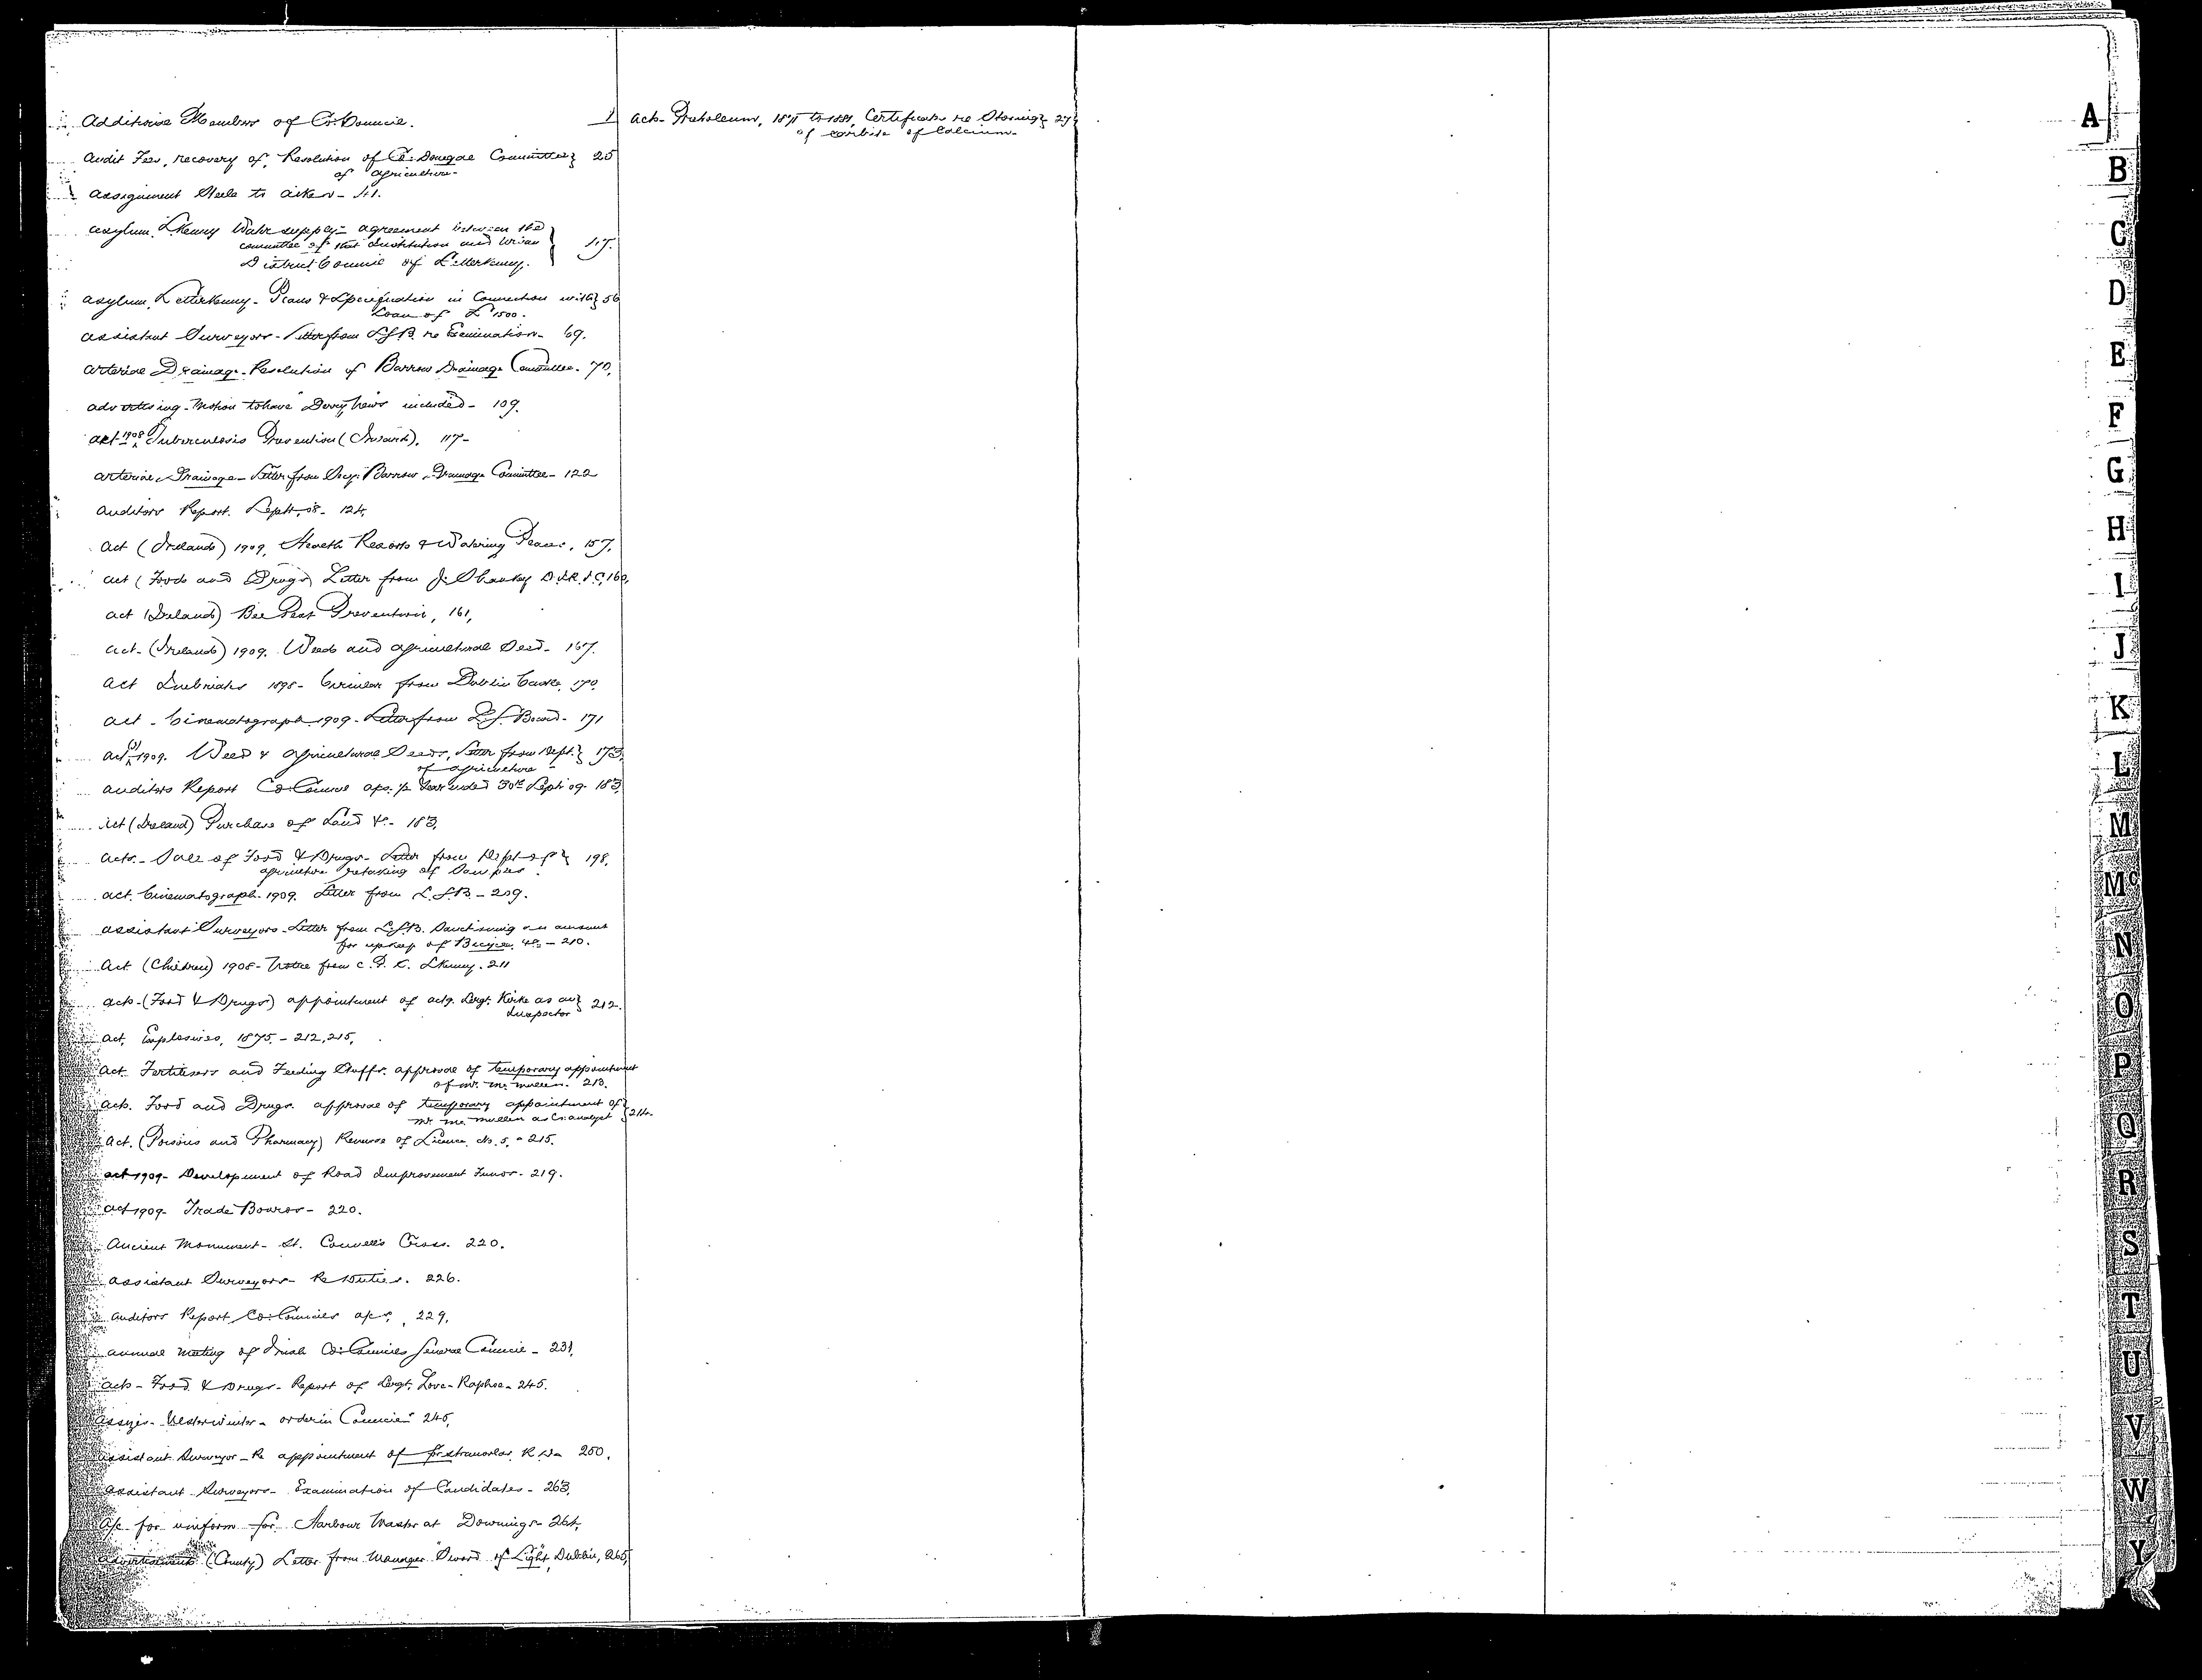 Additional Members of Co. Council. 1
Audit Fees, recovery of, Resolution of Co. Donegal Committee } 25
of Agriculture-
Assignment Steele to Aiken - 41.
Asylum. L'Kenny Water supply - agreement between the
committee of that Institution and Urban
District Council of Letterkenny. } 47.
Asylum, Letterkenny - Plans & Specification in Connection with } 56
Loan of £1500.
Assistant Surveyors - Letter from L.G.B. re Examination - 69.
Arterial Drainage - Resolution of Barrow Drainage Committee - 70.
Advertising - Motion to have "Derry News" included - 109.
Act 1908 Tuberculosis Prevention (Ireland). 117-
Arterial Drainage - Letter from Secy. Barrow Drainage Committee - 122
Auditors Report. Sept. 08 - 124.
Act (Ireland) 1909, Health Resorts & Watering Places. 157.
Act (Foods and Drugs) Letter from J. Sharkey D.I.R.I.C. 160.
Act (Ireland) Bee Pest Prevention, 161,
Act - (Ireland) 1909. Weeds and Agricultural Seed - 167.
Act Inebriates 1898 - Circular from Dublin Castle, 170.
Act - Cinematograph 1909 - Letter from L.G. Board - 171
Act (I) 1909. Weed & Agricultural Seeds, Letter from Dept. } 173.
of Agriculture -
Auditors Report Co. Council a/cs. ½ Year ended 30th Sept. 09 - 183
Act (Ireland) Purchase of Land &c - 183.
Acts - Sale of Food & Drugs - Letter from Dept of } 198.
Agriculture retaking of Samples.
Act. Cinematograph - 1909. Letter from L.G.B - 209.
Assistant Surveyors - Letter from L.G.B. Sanctioning an amount
for upkeep of Bicycles &c - 210.
Act (Children) 1908 - Notice from C.P.S. L'Kenny. 211
Acts - (Food & Drugs) appointment of actg. Sergt. Kirke as an } 212.
Inspector
Act, Explosives, 1875. - 212, 215.
Act Fertilisers and Feeding Stuffs. approval of temporary appointment
of Mr. McMullen. 213.
Acts. Food and Drugs. approval of temporary appointment of
Mr. McMullen as Co. Analyst } 214.
Act. (Poisons and Pharmacy) Renewal of Licence No. 5. - 215.
Act 1909 - Development of Road Improvement Funds - 219.
Act 1909 - Trade Boards - 220.
Ancient Monument - St. Connell's Cross. 220.
Assistant Surveyors - Re Duties. 226.
Auditors Report Co. Councils a/cs, 229.
Annual Meeting of Irish Co. Councils General Council - 231.
Acts - Food & Drugs - Report of Sergt. Love - Raphoe - 245.
Assizes - Ulster Winter - order in Council 245.
Assistant Surveyor - Re appointment of for Stranorlar R.D - 250.
Assistant Surveyors - Examination of Candidates - 263.
A/c for uniform for Harbour Master at Downings - 264.
Advertisements (County) Letter from Manager "Sword of Light", Dublin, 265,
Acts - Petroleum, 1871 to 1881, Certificate re Storing } 27
of carbide of Calcium -
A
B
C
D
E
F
G
H
I
J
K
L
M
Mc
N
O
P
Q
R
S
T
U
V
W
Y